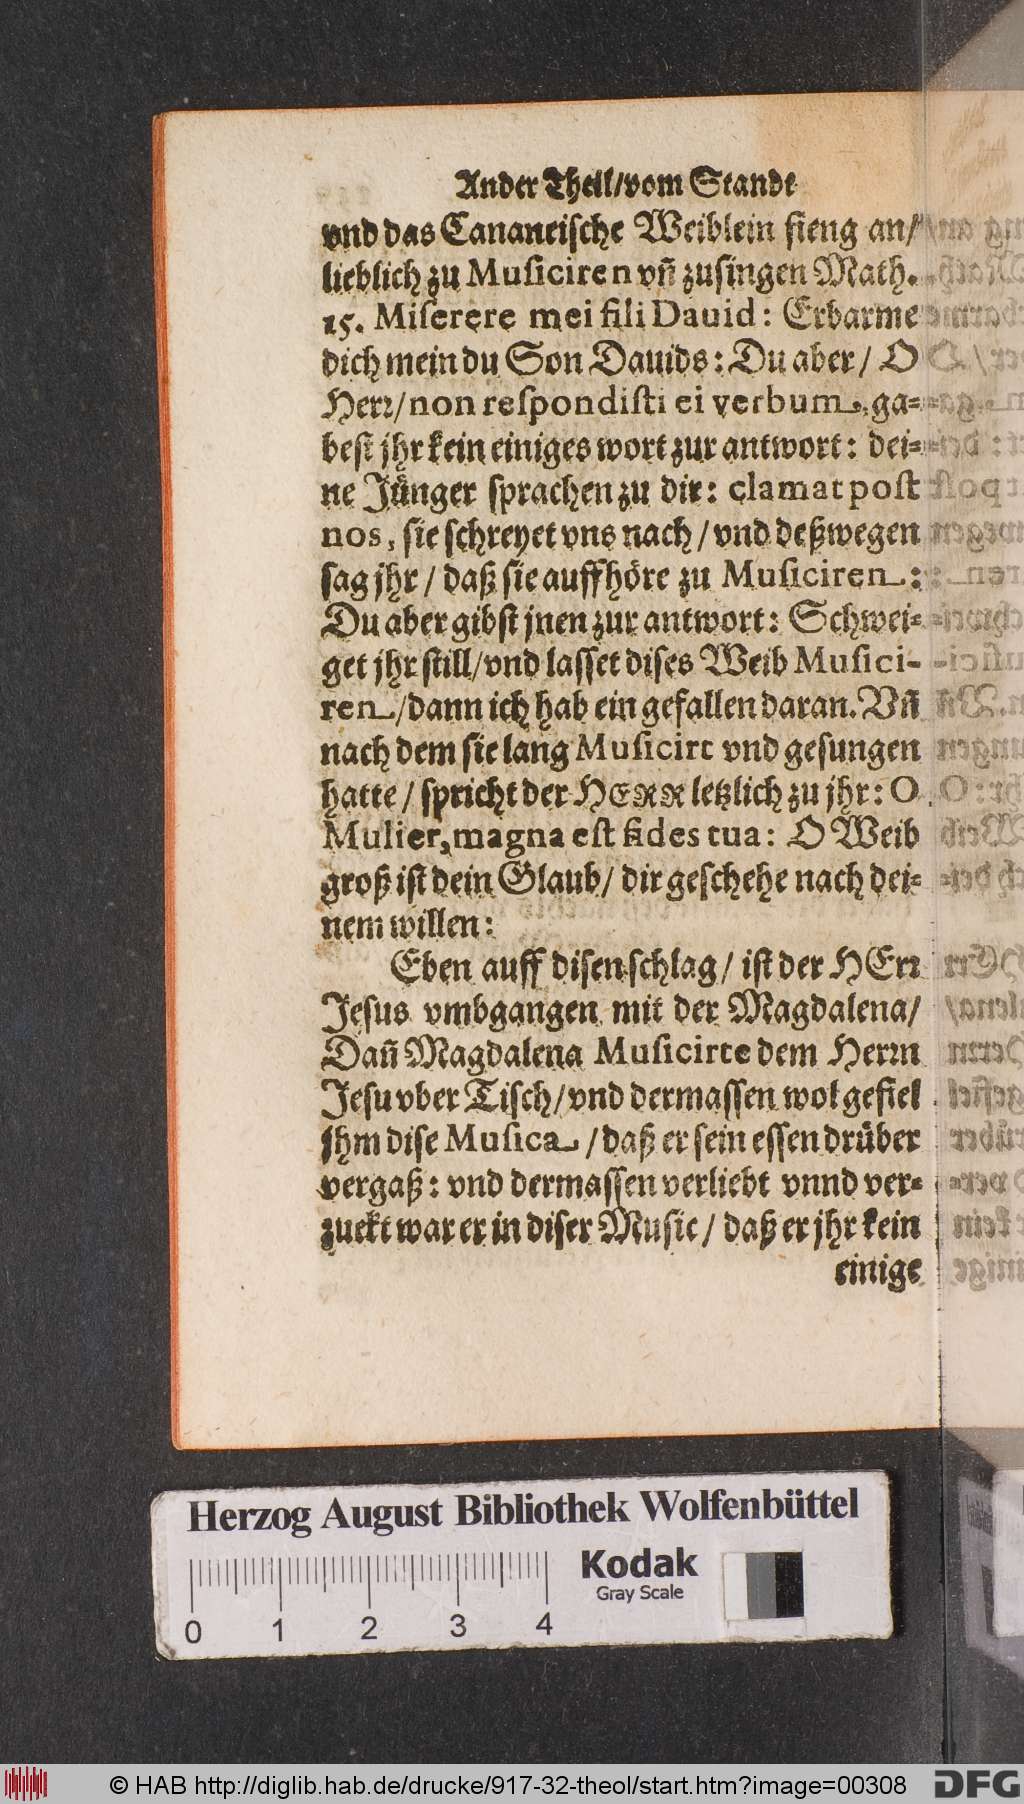 Ander Theil/vom Stande
vnd das Cananeische Weiblein fieng an/
lieblich zu Musiciren vñ zusingen Math.
15. Miserere mei fili Dauid: Erbarme
dich mein du Son Dauids: Du aber/ O
Herr/non respondisti ei verbum, ga-
best jhr kein einiges wort zur antwort: dei-
ne Jünger sprachen zu dir: clamat post
nos, sie schreyet vns nach/ vnd deßwegen
sag jhr/ daß sie auffhöre zu Musiciren:
Du aber gibst jnen zur antwort: Schwei-
get jhr still/vnd lasset dises Weib Musici-
ren/dann ich hab ein gefallen daran. Vñ
nach dem sie lang Musicirt vnd gesungen
hatte/ spricht der HERR letzlich zu jhr: O
Mulier, magna est fides tua: O Weib
groß ist dein Glaub/ dir geschehe nach dei-
nem willen:
Eben auff disen schlag/ ist der HErr
Jesus vmbgangen mit der Magdalena/
Dañ Magdalena Musicirte dem Herrn
Jesu vber Tisch/vnd dermassen wol gefiel
jhm dise Musica/daß er sein essen drüber
vergaß: vnd dermassen verliebt vnnd ver-
zuckt war er in diser Music/ daß er jhr kein
einige
Herzog August Bibliothek Wolfenbüttel
Kodak
Gray Scale
0 1 2 3 4
© HAB http://diglib.hab.de/drucke/917-32-theol/start.htm?image=00308
DFG